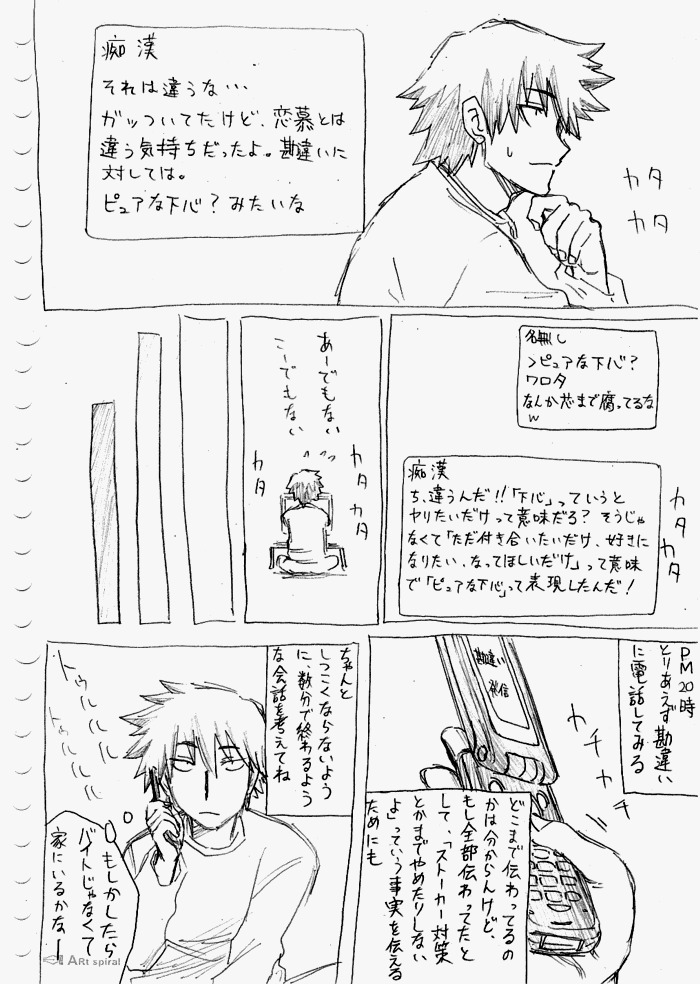 痴漢
それは違うな…
ガッついてたけど、恋慕とは
違う気持ちだったよ。勘違いに
対しては。
ピュアな下心？みたいな
カタ
カタ
名無し
>ピュアな下心？
ワロタ
なんか芯まで腐ってるな
w
痴漢
ち、違うんだ!!「下心」っていうと
ヤリたいだけって意味だろ？そうじゃ
なくて「ただ付き合いたいだけ、好きに
なりたい、なってほしいだけ」って意味
で「ピュアな下心」って表現したんだ！
カタ
カタ
あーでもない
こーでもない
カタ
カタ
カタ
PM20時
とりあえず勘違い
に電話してみる
勘違い
発信
カチカチ
どこまで伝わってるの
かは分からんけど、
もし全部伝わってたと
して、「ストーカー対策
とかまでやめたりしない
よ」っていう事実を伝える
ためにも
ちゃんと
しつこくならないよう
に、数分で終わるよう
な会話を考えてね
トゥルルルル
もしかしたら
バイトじゃなくて
家にいるかなー
ARt spiral